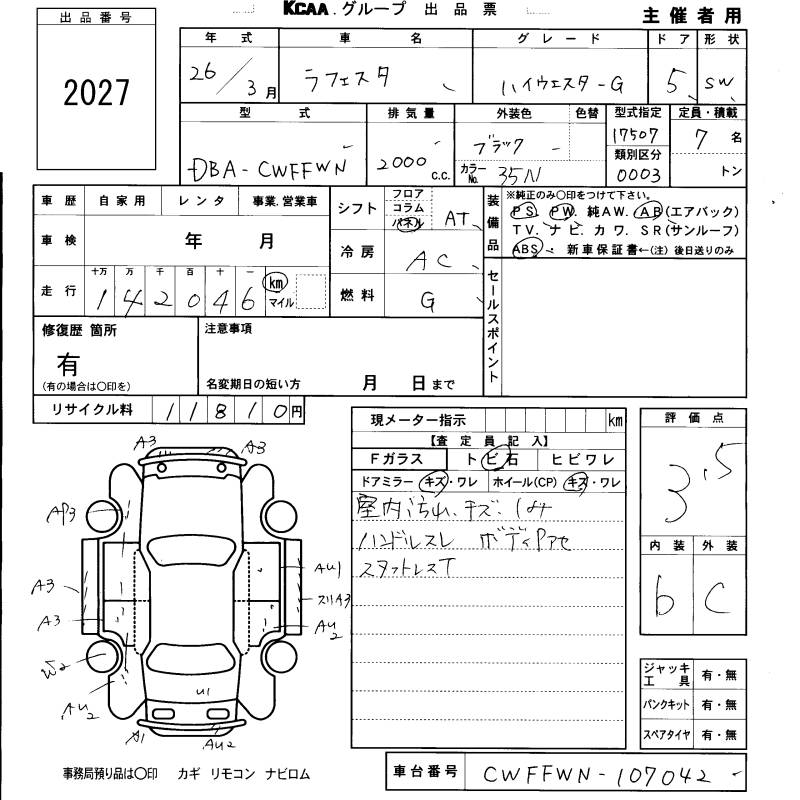 KCAA.グループ 出品票
主催者用
出品番号
2027
年式 車名 グレード ドア 形状
26/3月 ラフェスタ ハイウェスターG 5 SW
型式 排気量 外装色 色替 型式指定 定員・積載
DBA-CWFFWN 2000 c.c. ブラック カラーNo. 35N 17507 7名
類別区分
0003 トン
車歴 自家用 レンタ 事業.営業車
車検 年 月
走行 十万 万 千 百 十 一
142046 km マイル
シフト フロア コラム パネル AT
冷房 AC
燃料 G
装備品
※純正のみ○印をつけて下さい。
PS. PW. 純AW. AB(エアバック)
TV. ナビ. カワ. SR(サンルーフ)
ABS. 新車保証書←(注)後日送りのみ
セールスポイント
修復歴 箇所
有
(有の場合は○印を)
注意事項
名変期日の短い方 月 日まで
リサイクル料 11810円
現メーター指示 km
【査定員記入】
Fガラス トビ石 ヒビワレ
ドアミラー キズ・ワレ ホイール(CP) キズ・ワレ
室内汚れ.キズ.
ハンドルスレ
スタットレスT
評価点
3.5
内装 外装
b C
A3 A3
AP3
A3 AU1
A3 スリA3
AU2
W2
AU2
U1
A1 AU2
ジャッキ 工具 有・無
パンクキット 有・無
スペアタイヤ 有・無
事務局預り品は○印 カギ リモコン ナビロム
車台番号 CWFFWN-107042